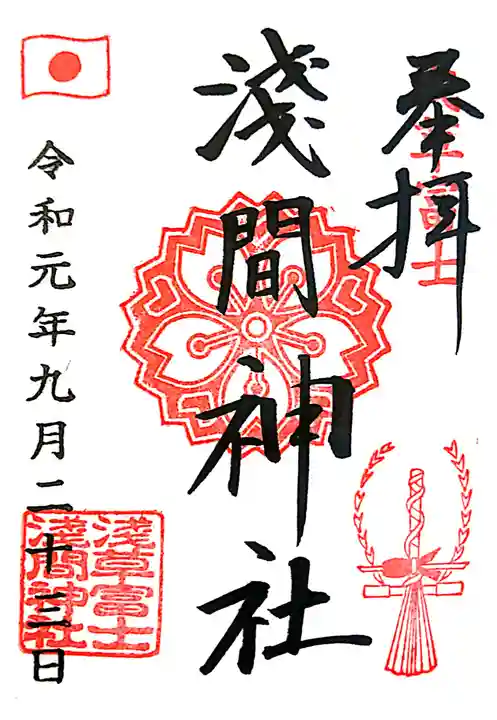 奉拝
浅草富士
淺間神社
令和元年九月二十三日
淺草富士
淺間神社